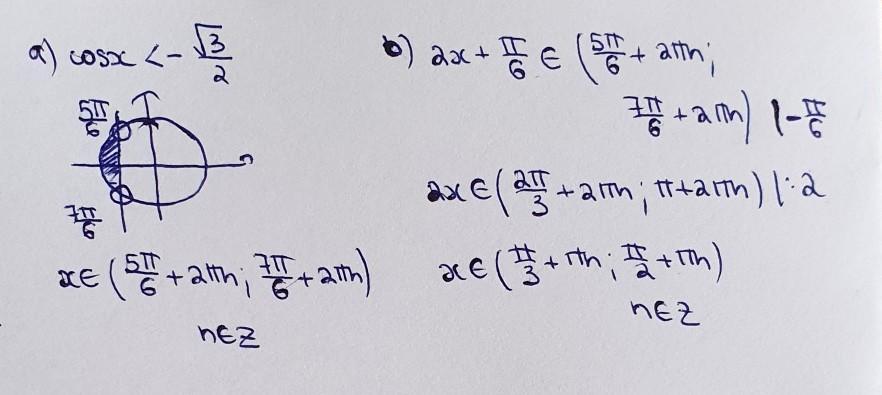 a) cosx < -√3/2
5π/6
7π/6
x∈(5π/6 + 2πn; 7π/6 + 2πn)
n∈Z
b) 2x + π/6 ∈ (5π/6 + 2πn;
7π/6 + 2πn) |-π/6
2x∈(2π/3 + 2πn; π+2πn) |:2
x∈(π/3 + πn; π/2 + πn)
n∈Z